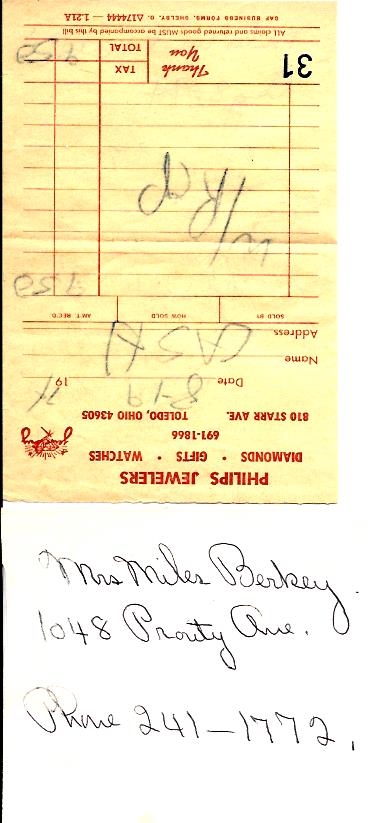 PHILIPS JEWELERS
DIAMONDS • GIFTS • WATCHES
691-1866
810 STARR AVE. TOLEDO, OHIO 43605
Date 8-19 19
Name CASH
Address
SOLD BY HOW SOLD AM'T. REC'D.
7.50
31 Thank You TAX
TOTAL 7.50
ALL claims and returned goods MUST be accompanied by this bill
GAF BUSINESS FORMS, SHELBY, O. △174444 — 1.21A
Mrs Miles Berkey.
1048 Prouty Ave.
Phone 241-1772.